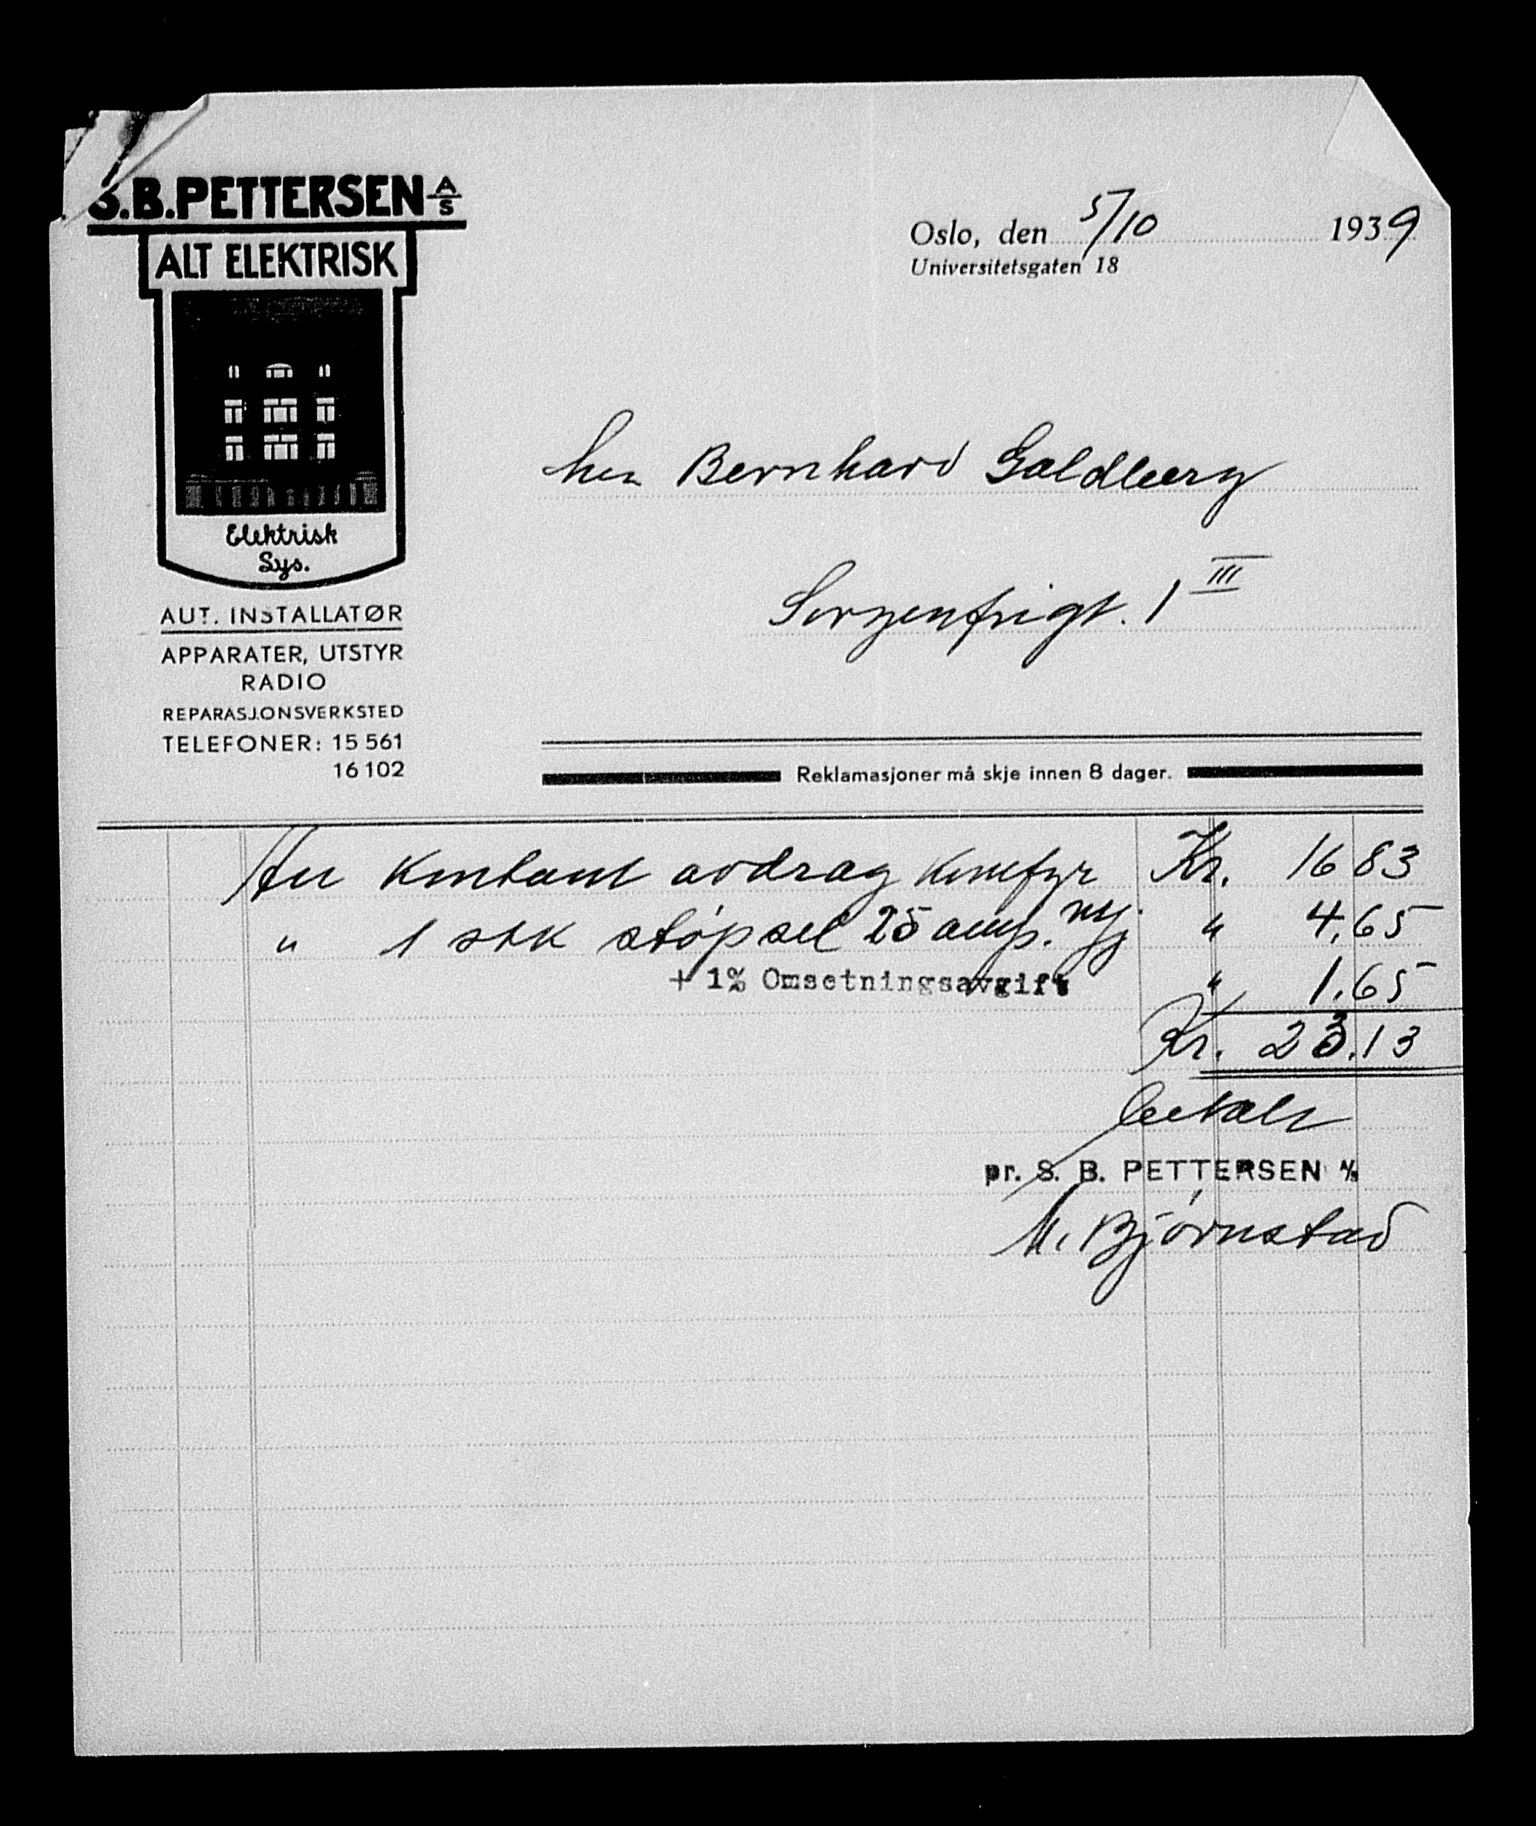 S.B.PETTERSEN A/S
ALT ELEKTRISK
Elektrisk
Sys.
AUT. INSTALLATØR
APPARATER, UTSTYR
RADIO
REPARASJONSVERKSTED
TELEFONER: 15 561
16 102
Oslo, den 5/10 1939
Universitetsgaten 18
herr Bernhard Goldberg
Sorgenfrigt. 1 III
Reklamasjoner må skje innen 8 dager.
An kontant avdrag komfyr Kr. 16 83
" 1 stk støpsel 25 amp. " 4,65
+ 1% Omsetningsavgift " 1.65
Kr. 23.13
betalt
pr. S. B. PETTERSEN A/S
M. Bjørnstad